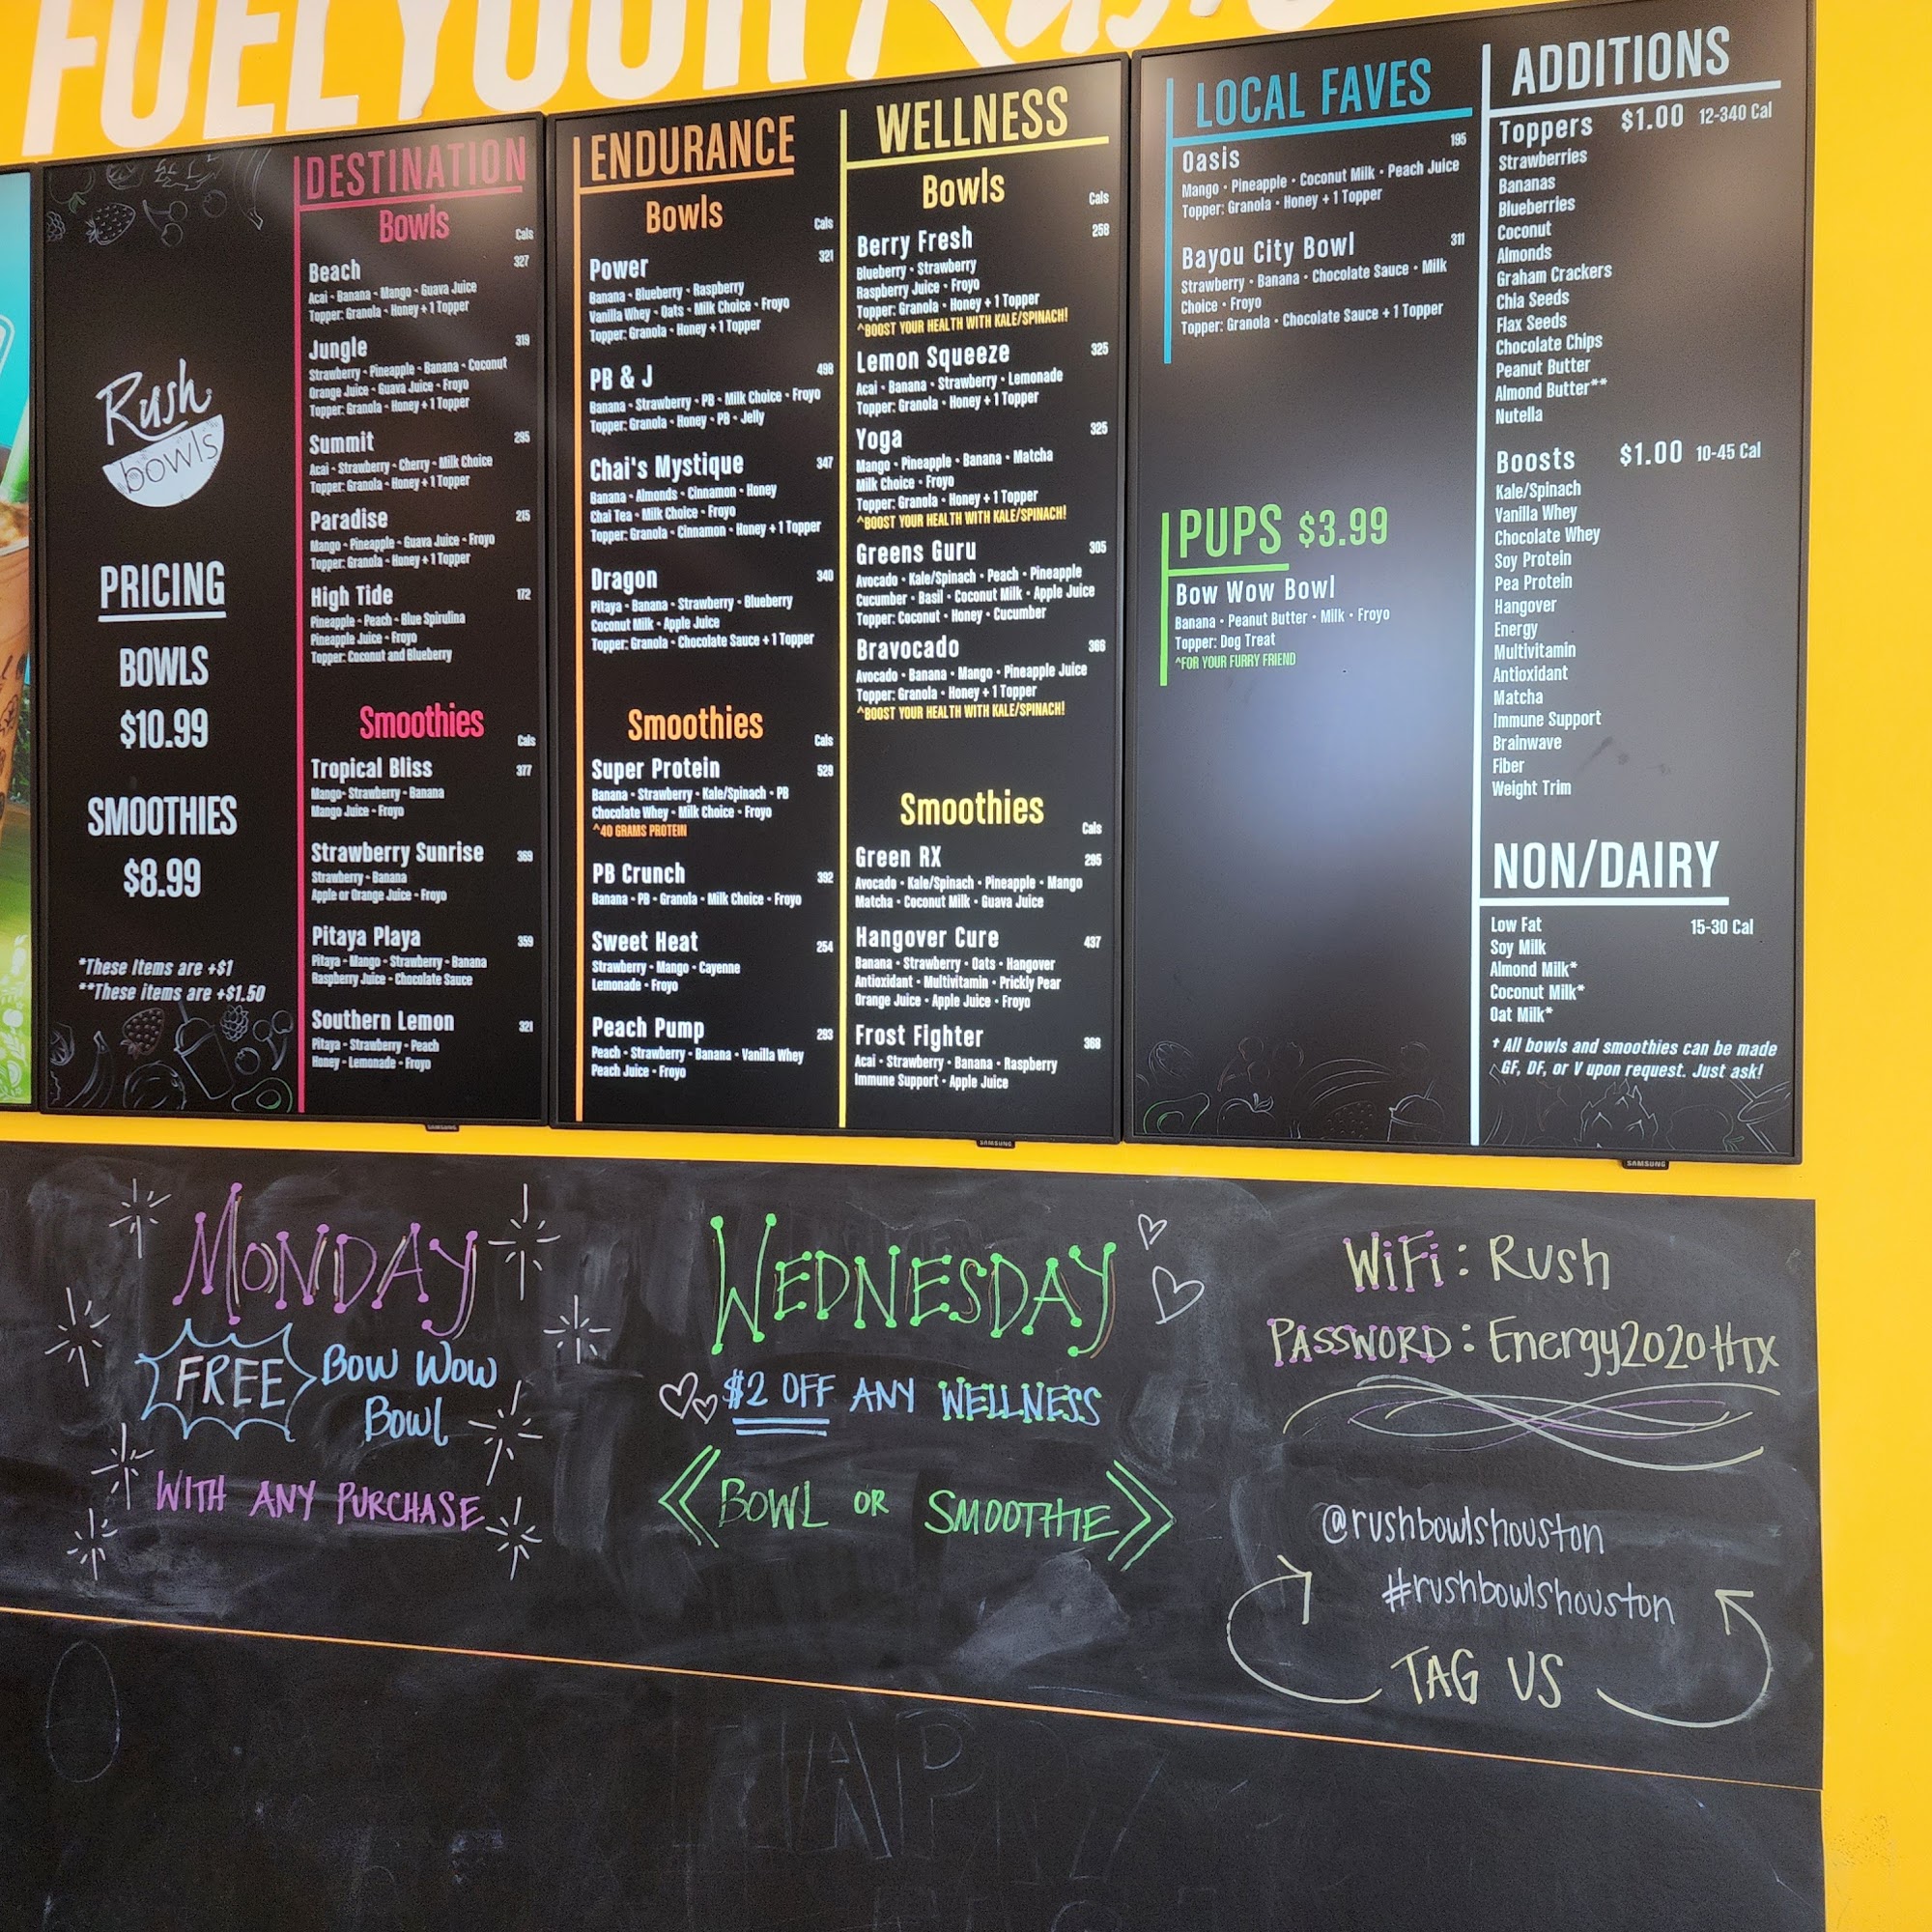 FUEL YOUR Rush
Rush
bowls
PRICING
BOWLS
$10.99
SMOOTHIES
$8.99
*These Items are +$1
**These items are +$1.50
DESTINATION
Bowls
Cals
Beach 327
Acai - Banana - Mango - Guava Juice
Topper: Granola - Honey + 1 Topper
Jungle 319
Strawberry - Pineapple - Banana - Coconut
Orange Juice - Guava Juice - Froyo
Topper: Granola - Honey + 1 Topper
Summit 295
Acai - Strawberry - Cherry - Milk Choice
Topper: Granola - Honey + 1 Topper
Paradise 215
Mango - Pineapple - Guava Juice - Froyo
Topper: Granola - Honey + 1 Topper
High Tide 172
Pineapple - Peach - Blue Spirulina
Pineapple Juice - Froyo
Topper: Coconut and Blueberry
Smoothies
Cals
Tropical Bliss 377
Mango- Strawberry - Banana
Mango Juice - Froyo
Strawberry Sunrise 369
Strawberry - Banana
Apple or Orange Juice - Froyo
Pitaya Playa 359
Pitaya - Mango - Strawberry - Banana
Raspberry Juice - Chocolate Sauce
Southern Lemon 321
Pitaya - Strawberry - Peach
Honey - Lemonade - Froyo
ENDURANCE
Bowls
Cals
Power 321
Banana • Blueberry • Raspberry
Vanilla Whey • Oats • Milk Choice • Froyo
Topper: Granola • Honey + 1 Topper
PB & J 498
Banana • Strawberry • PB • Milk Choice • Froyo
Topper: Granola • Honey • PB • Jelly
Chai's Mystique 347
Banana • Almonds • Cinnamon • Honey
Chai Tea • Milk Choice • Froyo
Topper: Granola • Cinnamon • Honey + 1 Topper
Dragon 340
Pitaya • Banana • Strawberry • Blueberry
Coconut Milk • Apple Juice
Topper: Granola • Chocolate Sauce + 1 Topper
Smoothies
Cals
Super Protein 529
Banana • Strawberry • Kale/Spinach • PB
Chocolate Whey • Milk Choice • Froyo
^40 GRAMS PROTEIN
PB Crunch 392
Banana • PB • Granola • Milk Choice • Froyo
Sweet Heat 254
Strawberry • Mango • Cayenne
Lemonade • Froyo
Peach Pump 293
Peach • Strawberry • Banana • Vanilla Whey
Peach Juice • Froyo
WELLNESS
Bowls
Cals
Berry Fresh 258
Blueberry • Strawberry
Raspberry Juice • Froyo
Topper: Granola • Honey + 1 Topper
^BOOST YOUR HEALTH WITH KALE/SPINACH!
Lemon Squeeze 325
Acai • Banana • Strawberry • Lemonade
Topper: Granola • Honey + 1 Topper
Yoga 325
Mango • Pineapple • Banana • Matcha
Milk Choice • Froyo
Topper: Granola • Honey + 1 Topper
^BOOST YOUR HEALTH WITH KALE/SPINACH!
Greens Guru 305
Avocado • Kale/Spinach • Peach • Pineapple
Cucumber • Basil • Coconut Milk • Apple Juice
Topper: Coconut • Honey • Cucumber
Bravocado 366
Avocado • Banana • Mango • Pineapple Juice
Topper: Granola • Honey + 1 Topper
^BOOST YOUR HEALTH WITH KALE/SPINACH!
Smoothies
Cals
Green RX 295
Avocado • Kale/Spinach • Pineapple • Mango
Matcha • Coconut Milk • Guava Juice
Hangover Cure 437
Banana • Strawberry • Oats • Hangover
Antioxidant • Multivitamin • Prickly Pear
Orange Juice • Apple Juice • Froyo
Frost Fighter 368
Acai • Strawberry • Banana • Raspberry
Immune Support • Apple Juice
LOCAL FAVES
Oasis 195
Mango • Pineapple • Coconut Milk • Peach Juice
Topper: Granola • Honey + 1 Topper
Bayou City Bowl 311
Strawberry • Banana • Chocolate Sauce • Milk
Choice • Froyo
Topper: Granola • Chocolate Sauce + 1 Topper
PUPS $3.99
Bow Wow Bowl
Banana • Peanut Butter • Milk • Froyo
Topper: Dog Treat
^FOR YOUR FURRY FRIEND
ADDITIONS
Toppers $1.00 12-340 Cal
Strawberries
Bananas
Blueberries
Coconut
Almonds
Graham Crackers
Chia Seeds
Flax Seeds
Chocolate Chips
Peanut Butter
Almond Butter**
Nutella
Boosts $1.00 10-45 Cal
Kale/Spinach
Vanilla Whey
Chocolate Whey
Soy Protein
Pea Protein
Hangover
Energy
Multivitamin
Antioxidant
Matcha
Immune Support
Brainwave
Fiber
Weight Trim
NON/DAIRY
Low Fat 15-30 Cal
Soy Milk
Almond Milk*
Coconut Milk*
Oat Milk*
† All bowls and smoothies can be made
GF, DF, or V upon request. Just ask!
SAMSUNG
SAMSUNG
SAMSUNG
MONDAY
FREE BOW WOW
BOWL
WITH ANY PURCHASE
WEDNESDAY
$2 OFF ANY WELLNESS
BOWL OR SMOOTHIE
WiFi: Rush
PASSWORD: Energy2020HTX
@rushbowlshouston
#rushbowlshouston
TAG US
HAPPY